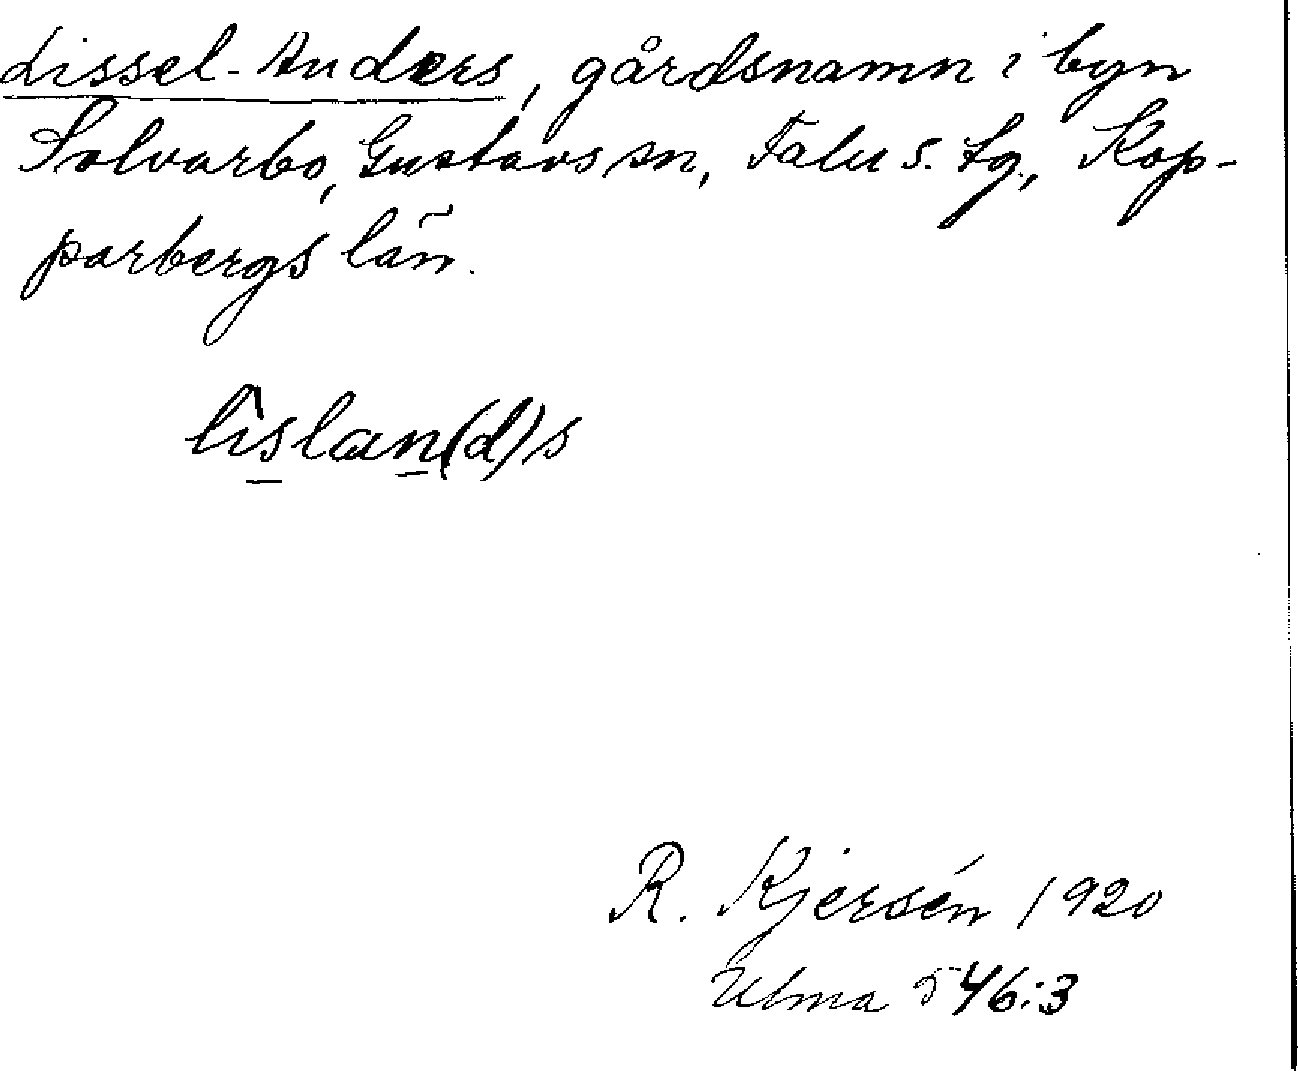 Lissel-Anders, gårdsnamn i byn
Solvarbo, Gustavs sn, Falu s. tg., Kop-
parbergs län.
lìslan(d)s
R. Kjersén 1920
Ulma 546:3